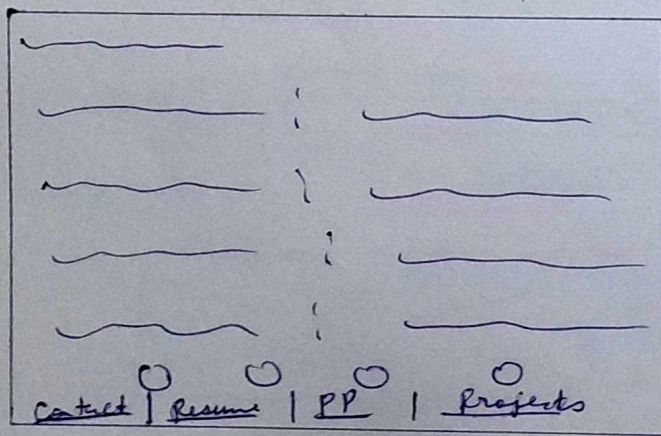 Contact | Resume | PP | Projects